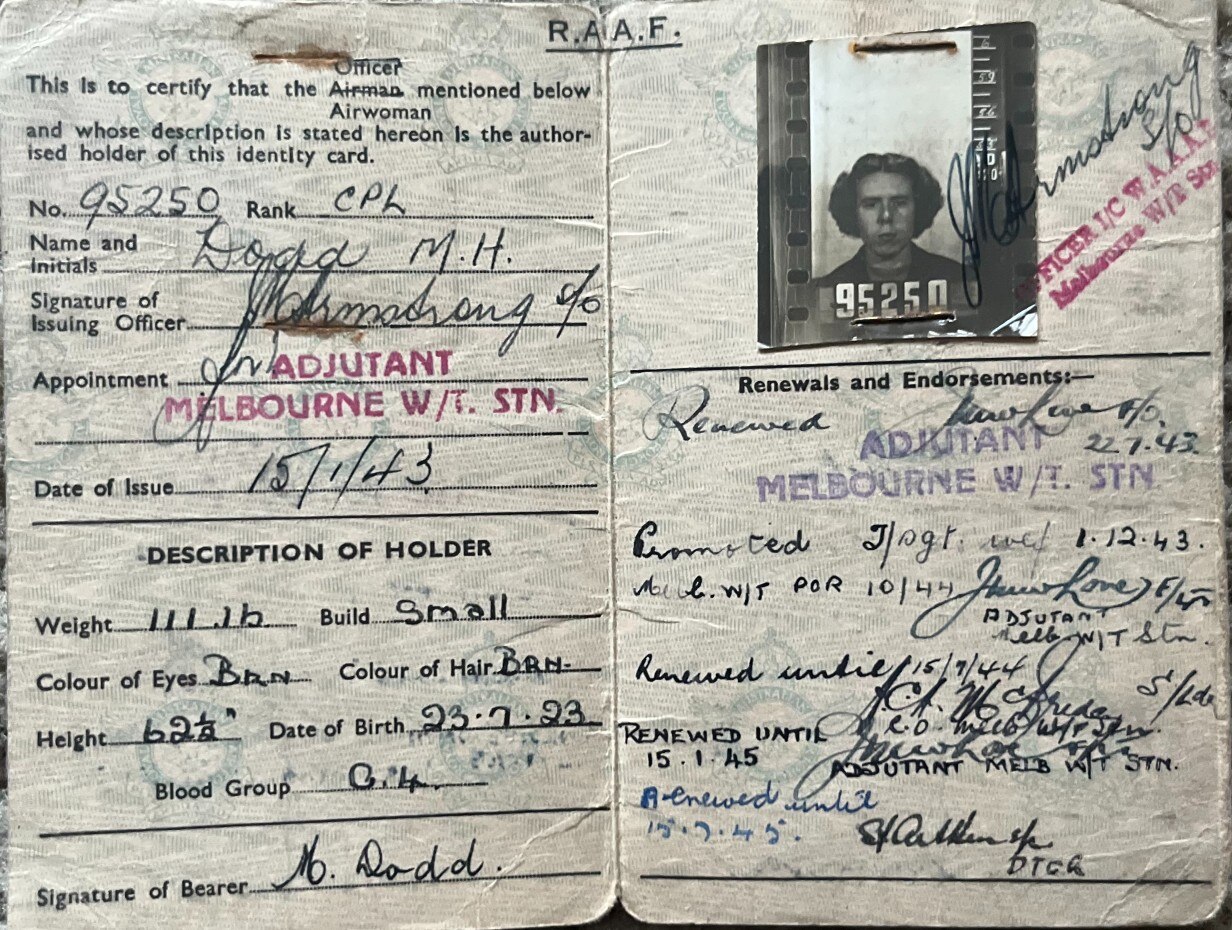 R.A.A.F.
Officer
This is to certify that the Airman mentioned below
Airwoman
and whose description is stated hereon is the author-
ised holder of this identity card.
No. 95250 Rank CPL
Name and Initials Dodd M.H.
Signature of Issuing Officer Armstrong S/O
Appointment ADJUTANT
MELBOURNE W/T. STN.
Date of Issue 15/1/43
DESCRIPTION OF HOLDER
Weight 111 lb Build Small
Colour of Eyes BRN Colour of Hair BRN
Height 62½" Date of Birth 23.7.23
Blood Group O.4.
Signature of Bearer M. Dodd.
95250
Armstrong
S/O
OFFICER I/C W.A.A.A.F.
Melbourne W/T Stn.
Renewals and Endorsements:—
Renewed F/O.
ADJUTANT 22.7.43
MELBOURNE W/T. STN
Promoted T/Sgt. wef 1.12.43.
Melb. W/T POR 10/44
ADJUTANT
Melb W/T Stn.
Renewed until 15/7/44
S/Ldr
C.O. Melb W/T Stn.
RENEWED UNTIL
15.1.45 ADJUTANT MELB W/T STN.
Renewed until
15.7.45.